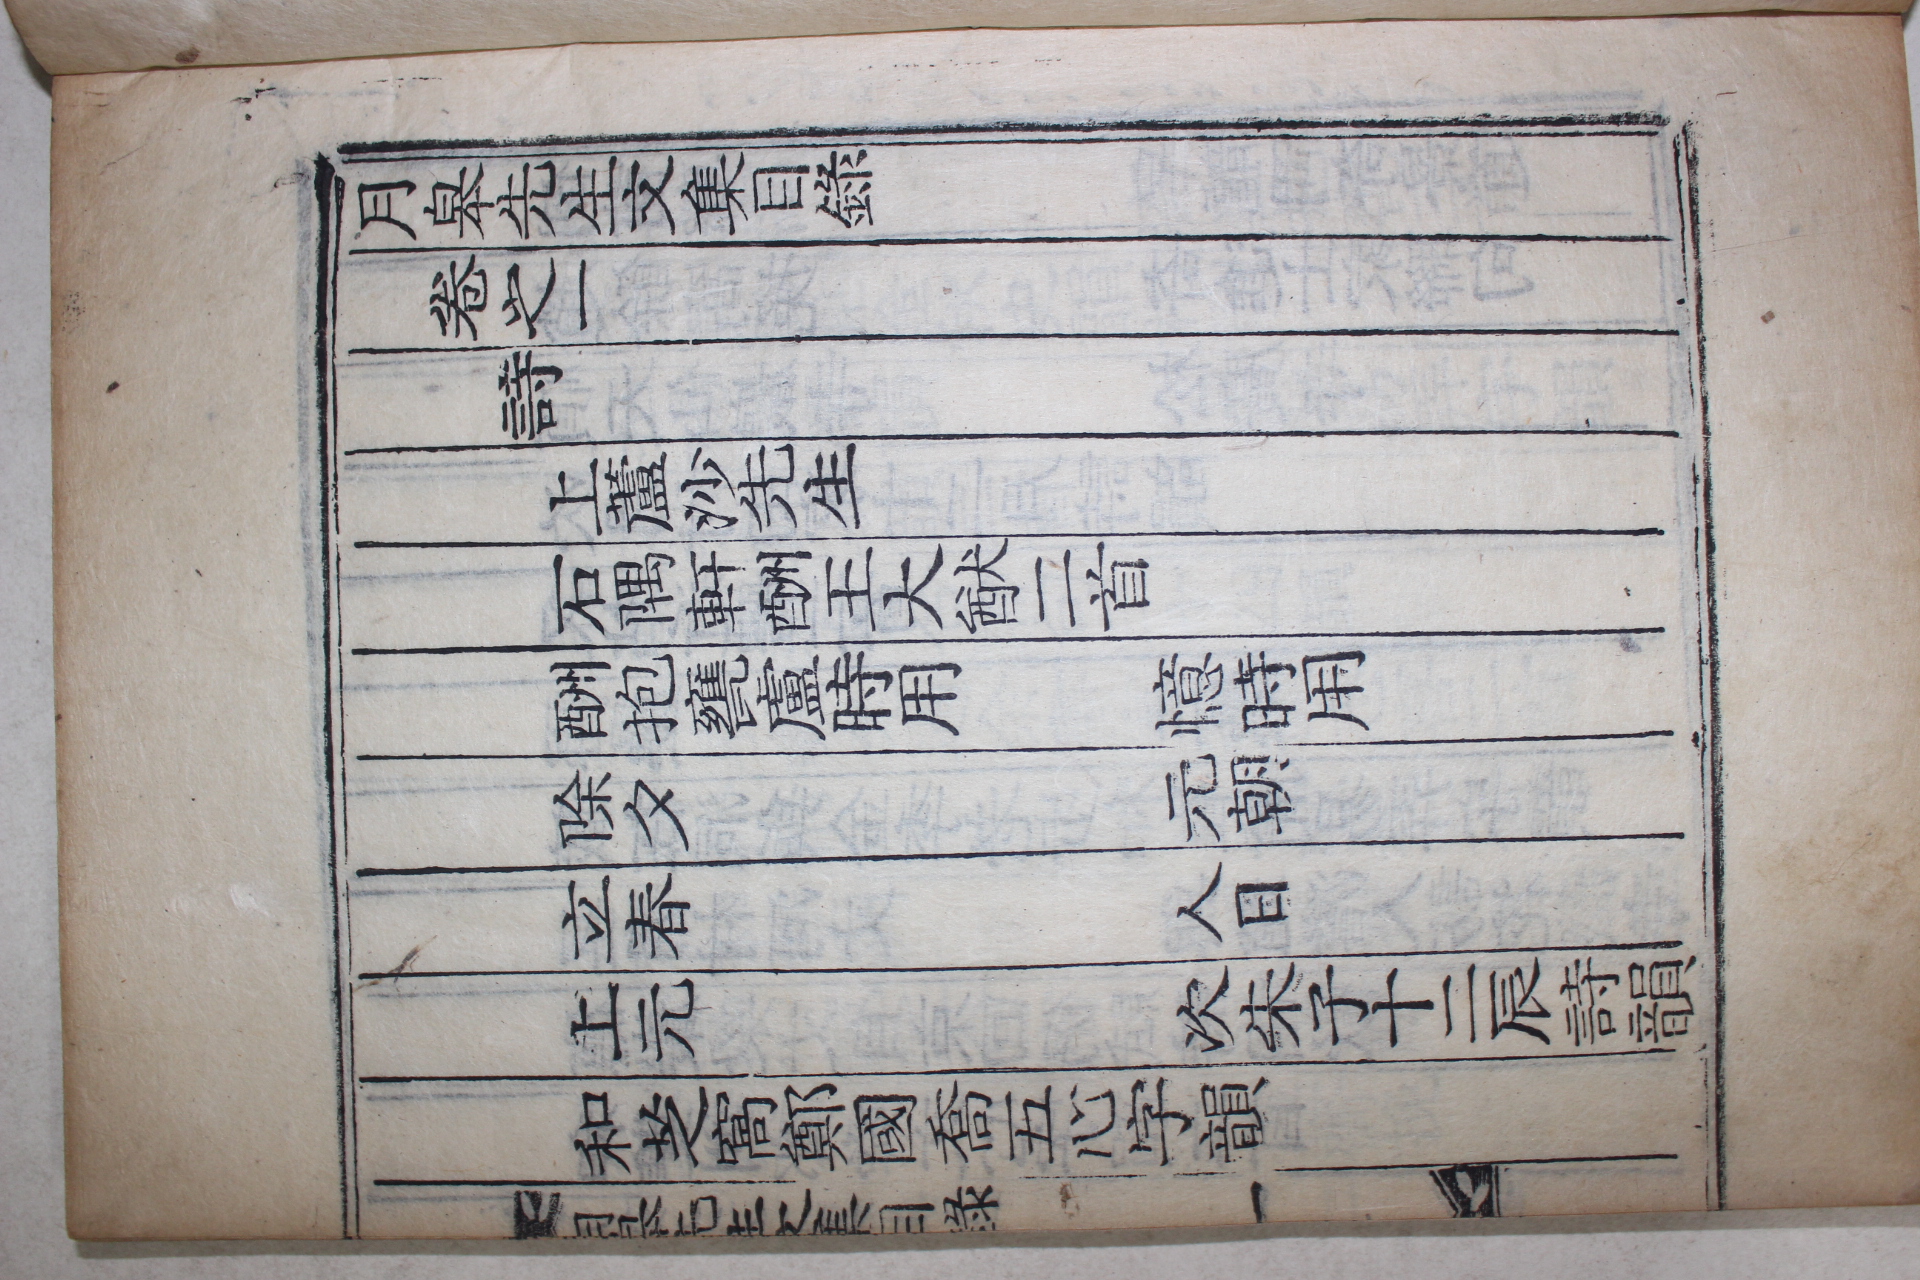 月皐先生文集目錄
卷之一
詩
上蘆沙先生
石隅軒酬王大猷二首
酬抱甕廬時用 憶時用
除夕 元朝
立春 人日
上元 次朱子十二辰詩韻
和芝窩鄭國喬五心字韻
月皐先生文集目錄 一